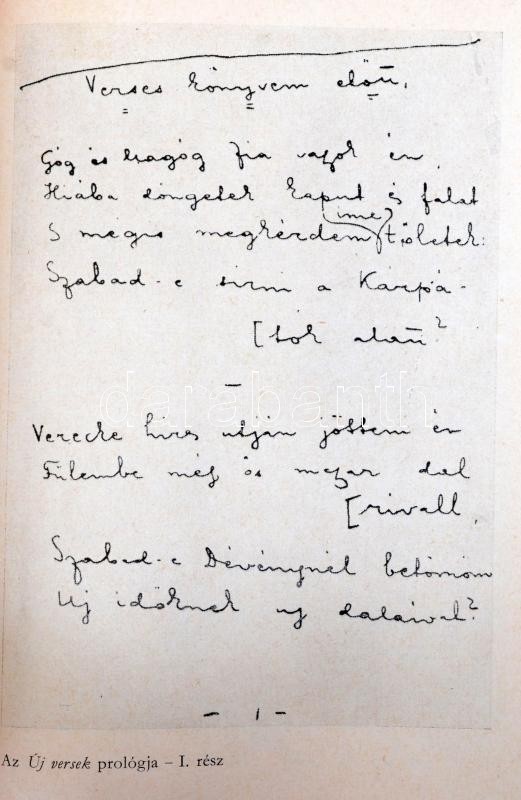 Verses könyvem előtt.
Góg és Magóg fia vagyok én
Hiába döngetek kaput és falat
S mégis megkérdem (ime) tőletek:
Szabad-e sirni a Kárpá-
[tok alatt?
–
Verecke hires utján jöttem én
Fülembe még ős magyar dal
[rivall
Szabad-e Dévénynél betörnöm
Uj időknek uj dalaival?
– 1 –
darabanth
Az Új versek prológja – I. rész